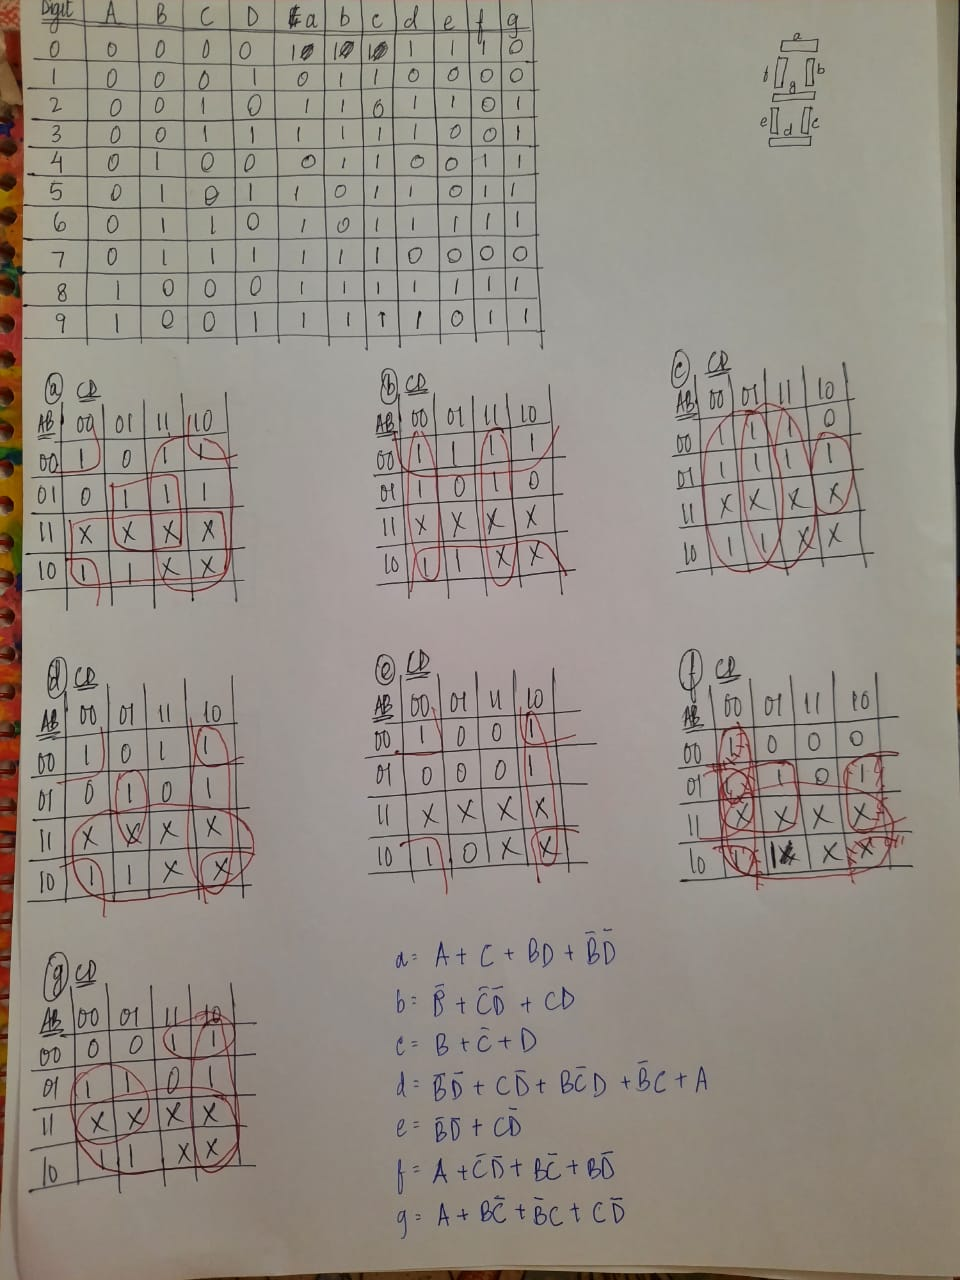 Digit A B C D a b c d e f g
0 0 0 0 0 1 1 1 1 1 1 0
1 0 0 0 1 0 1 1 0 0 0 0
2 0 0 1 0 1 1 0 1 1 0 1
3 0 0 1 1 1 1 1 1 0 0 1
4 0 1 0 0 0 1 1 0 0 1 1
5 0 1 0 1 1 0 1 1 0 1 1
6 0 1 1 0 1 0 1 1 1 1 1
7 0 1 1 1 1 1 1 0 0 0 0
8 1 0 0 0 1 1 1 1 1 1 1
9 1 0 0 1 1 1 1 1 0 1 1
a
f b
g
e d c
a CD
AB 00 01 11 10
00 1 0 1 1
01 0 1 1 1
11 X X X X
10 1 1 X X
b CD
AB 00 01 11 10
00 1 1 1 1
01 1 0 1 0
11 X X X X
10 1 1 X X
c CD
AB 00 01 11 10
00 1 1 1 0
01 1 1 1 1
11 X X X X
10 1 1 X X
d CD
AB 00 01 11 10
00 1 0 1 1
01 0 1 0 1
11 X X X X
10 1 1 X X
e CD
AB 00 01 11 10
00 1 0 0 1
01 0 0 0 1
11 X X X X
10 1 0 X X
f CD
AB 00 01 11 10
00 1 0 0 0
01 1 1 0 1
11 X X X X
10 1 1 X X
g CD
AB 00 01 11 10
00 0 0 1 1
01 1 1 0 1
11 X X X X
10 1 1 X X
a = A + C + BD + B̄D̄
b = B̄ + C̄D̄ + CD
c = B + C̄ + D
d = B̄D̄ + CD̄ + BC̄D + B̄C + A
e = B̄D̄ + CD̄
f = A + C̄D̄ + BC̄ + BD̄
g = A + BC̄ + B̄C + CD̄